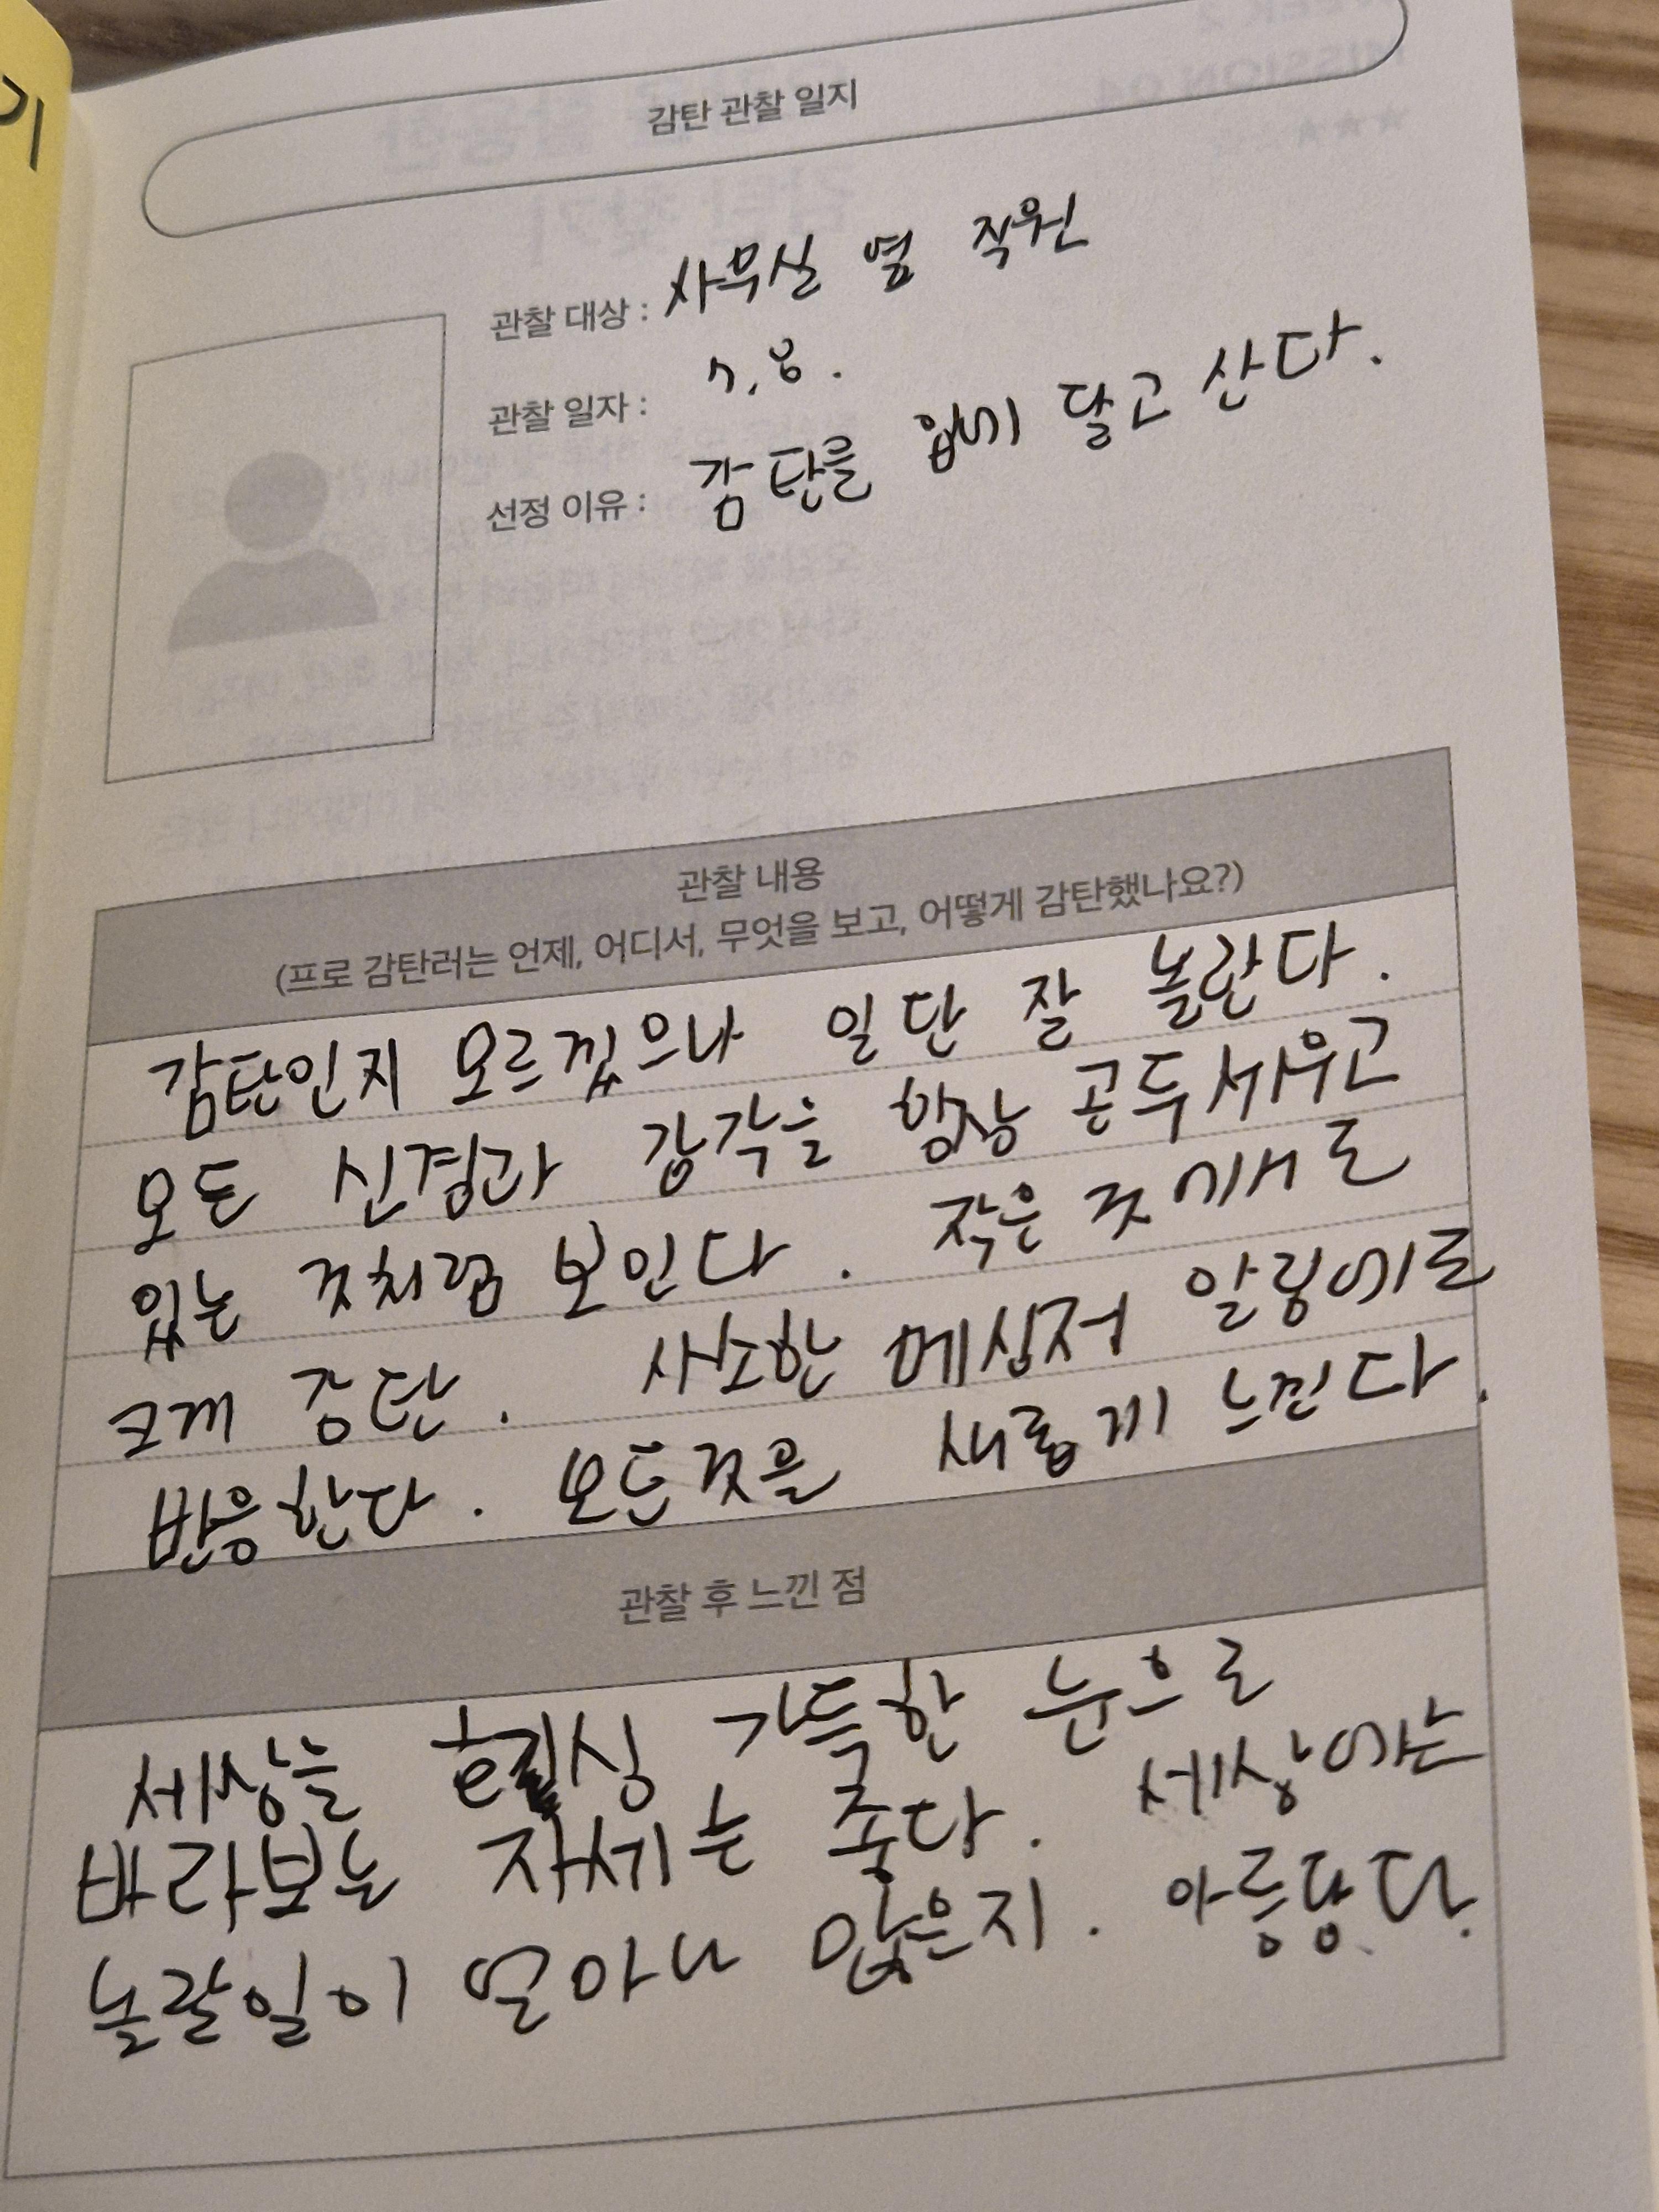 감탄 관찰 일지
관찰 대상 : 사무실 옆 직원
관찰 일자 : 7.8.
선정 이유 : 감탄을 입에 달고 산다.
관찰 내용
(프로 감탄러는 언제, 어디서, 무엇을 보고, 어떻게 감탄했나요?)
감탄인지 모르겠으나 일단 잘 놀란다.
모든 신경과 감각을 항상 곤두세우고
있는 것처럼 보인다. 작은 것에서도
크게 감탄. 사소한 메신저 알림에도
반응한다. 모든것을 새롭게 느낀다.
관찰 후 느낀 점
세상을 가득한 눈으로
바라보는 자세는 좋다. 세상에는
놀랄일이 얼마나 많은지. 아름답다.